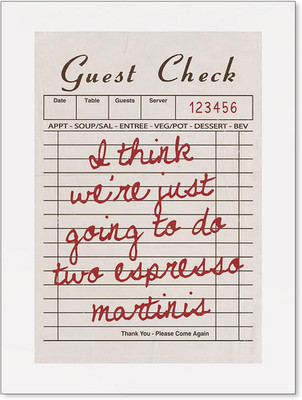 Guest Check
Date Table Guests Server 123456
APPT - SOUP/SAL - ENTREE - VEG/POT - DESSERT - BEV
I think
we're just
going to do
two espresso
martinis
Thank You - Please Come Again